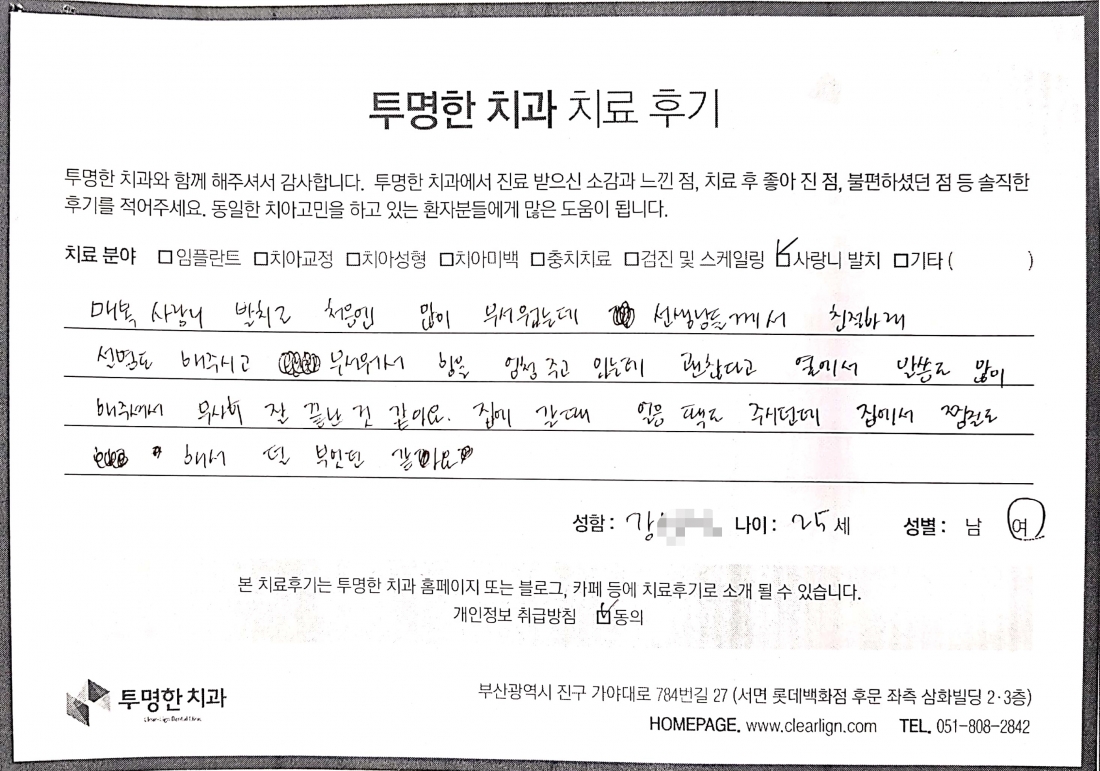 투명한 치과 치료 후기
투명한 치과와 함께 해주셔서 감사합니다. 투명한 치과에서 진료 받으신 소감과 느낀 점, 치료 후 좋아 진 점, 불편하셨던 점 등 솔직한
후기를 적어주세요. 동일한 치아고민을 하고 있는 환자분들에게 많은 도움이 됩니다.
치료 분야 □임플란트 □치아교정 □치아성형 □치아미백 □충치치료 □검진 및 스케일링 ☑사랑니 발치 □기타 ( )
매복 사랑니 발치로 처음엔 많이 무서웠는데 선생님들께서 친절하게
설명도 해주시고 무서워서 힘을 엄청 주고 있는데 괜찮다고 옆에서 말씀도 많이
해주셔서 무사히 잘 끝난 것 같아요. 집에 갈때 얼음 팩도 주시던데 집에서 찜질도
해서 덜 부었던 같아요
성함 : 강 나이 : 25 세 성별 : 남 여
본 치료후기는 투명한 치과 홈페이지 또는 블로그, 카페 등에 치료후기로 소개 될 수 있습니다.
개인정보 취급방침 ☑동의
투명한 치과
부산광역시 진구 가야대로 784번길 27 (서면 롯데백화점 후문 좌측 삼화빌딩 2·3층)
HOMEPAGE. www.clearlign.com TEL. 051-808-2842